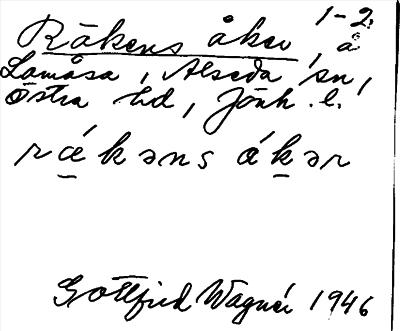 1-2.
Råkens åker, å
Lamåsa, Alseda sn,
Östra hd, Jönk. l.
rákəns ákər
Gottfrid Wagnér 1946